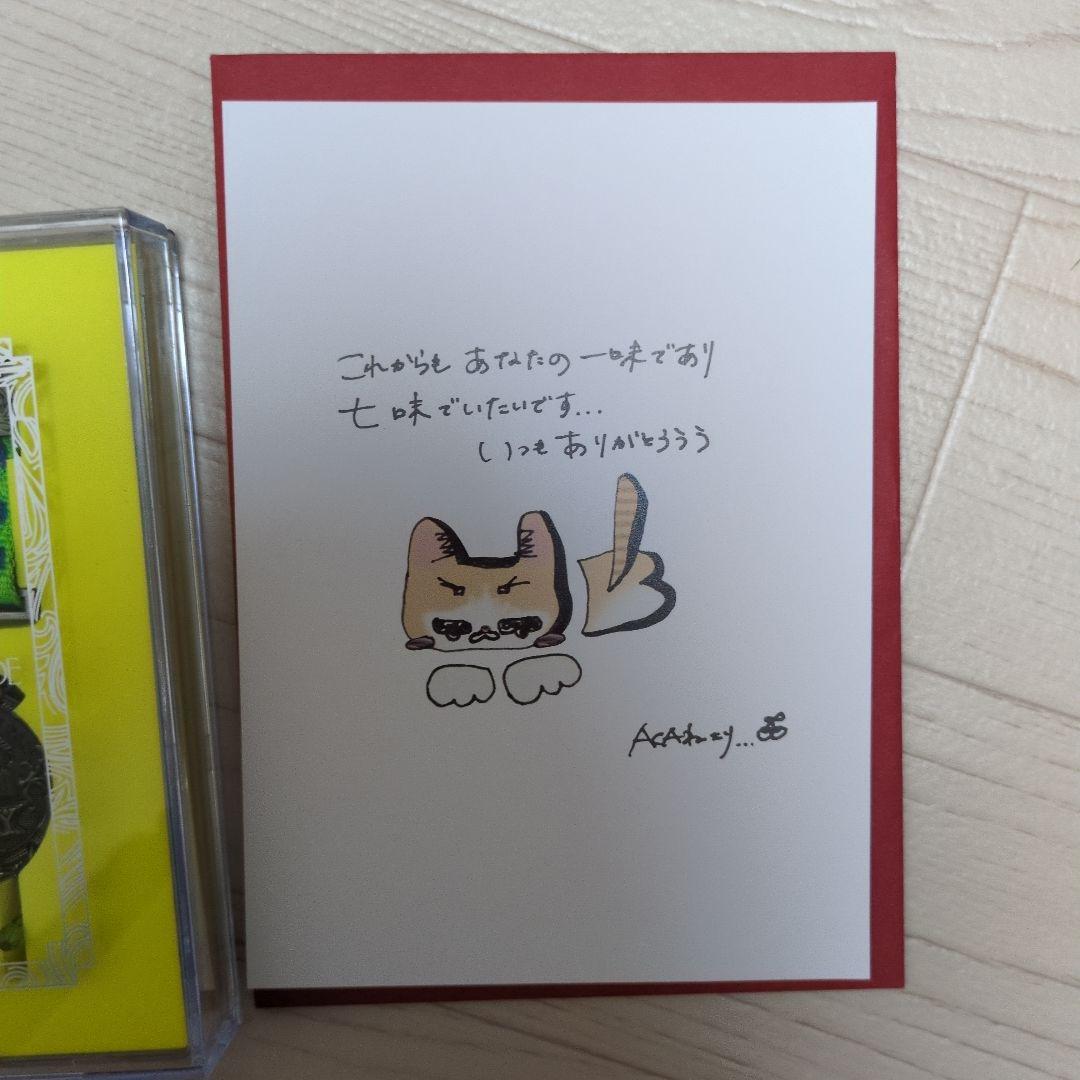 これからも あなたの 一味であり
七味でいたいです...
いつも ありがとううう
ACAねェヨ...